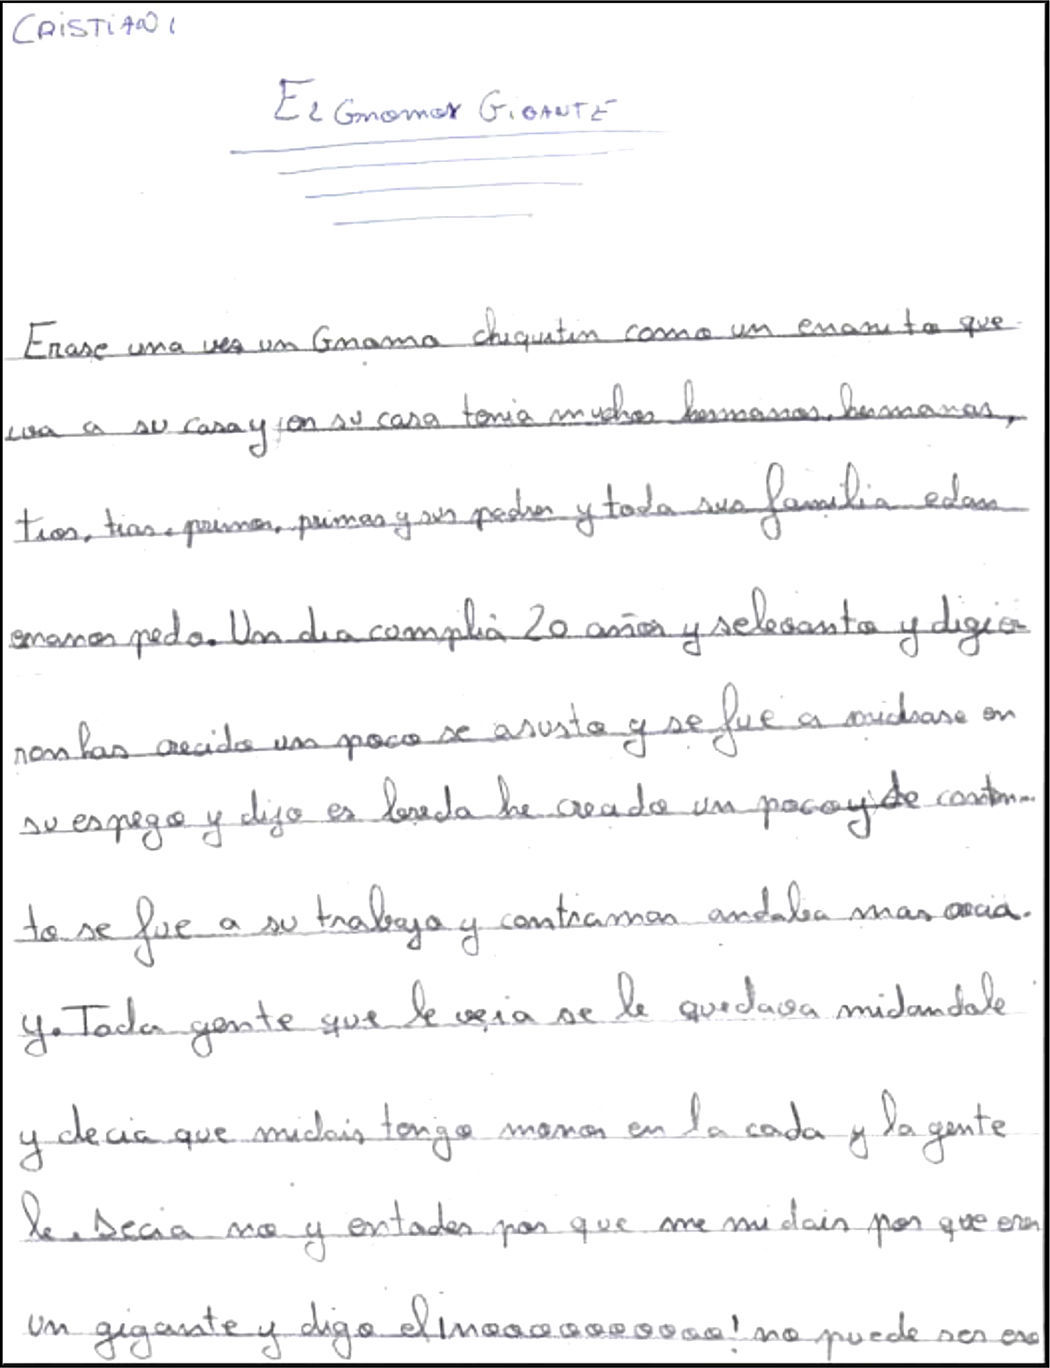 CRISTIAN
El Gnomo Gigante
Erase una ves un Gnomo chiquitin como un enanito que
iva a su casa y en su casa tenia muchos hermanos, hermanas,
tios, tias, primos, primas y sus padres y toda sus familia edan
enanos pedo. Un dia complia 20 años y selevanto y digie
ron has crecido un poco se asusto y se fue a midrase en
su espego y dijo es berda he crecido un poco y de conten
to se fue a su trabajo y contramas andaba mas crecia.
y. Toda gente que le veia se le quedava midandole
y decia que midais tengo monos en la cada y la gente
le. Decia no y entades por que me midais por que eres
un gigante y digo el ¡noooooooooo! no puede ser ero